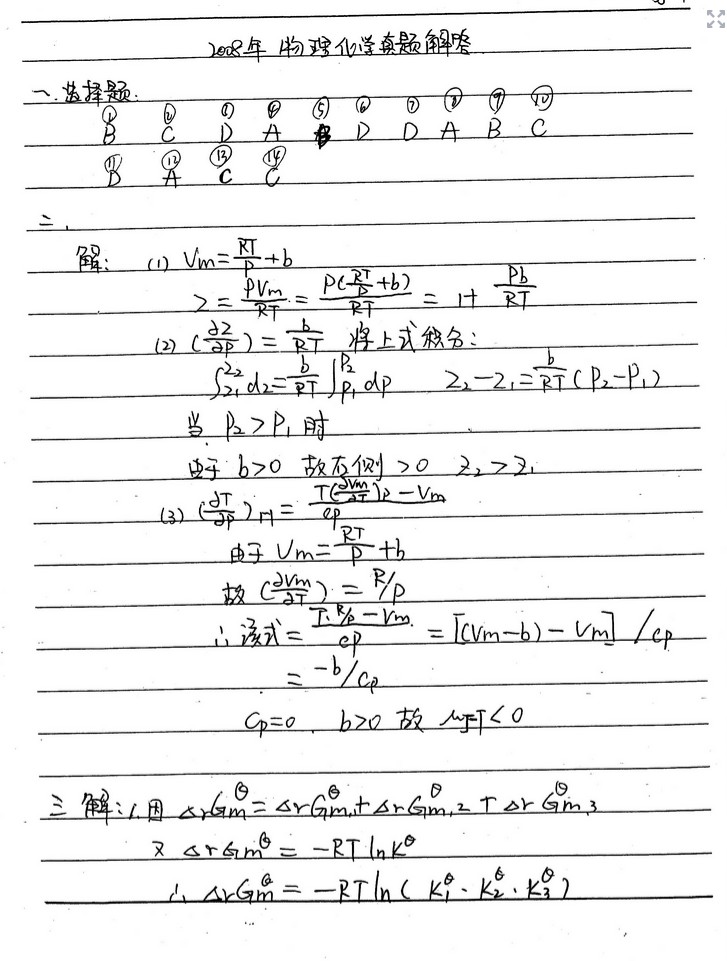 2008年 物理化学真题解答
一、选择题:
① ② ③ ④ ⑤ ⑥ ⑦ ⑧ ⑨ ⑩
B C D A D D A B C
⑪ ⑫ ⑬ ⑭
D A C C
二、
解: (1) Vm = RT/P + b
Z = PVm/RT = P(RT/P + b)/RT = 1+ Pb/RT
(2) (∂Z/∂P) = b/RT 将上式积分:
∫_{Z1}^{Z2} dZ = b/RT ∫_{P1}^{P2} dp Z₂-Z₁ = b/RT (P₂-P₁)
当 P₂ > P₁ 时
由于 b>0 故右侧 >0 Z₂ > Z₁
(3) (∂T/∂P)_H = [T(∂Vm/∂T)_P - Vm]/cp
由于 Vm = RT/P + b
故 (∂Vm/∂T) = R/P
∴ 该式 = (T·R/P - Vm)/cp = [(Vm-b) - Vm] / cp
= -b/Cp
Cp=0 . b>0 故 μJ-T < 0
三 解: 1. 因 ΔrGm^θ = ΔrGm,1^θ + ΔrGm,2^θ + ΔrGm,3^θ
又 ΔrGm^θ = -RT ln K^θ
∴ ΔrGm^θ = -RT ln( K₁^θ · K₂^θ · K₃^θ )